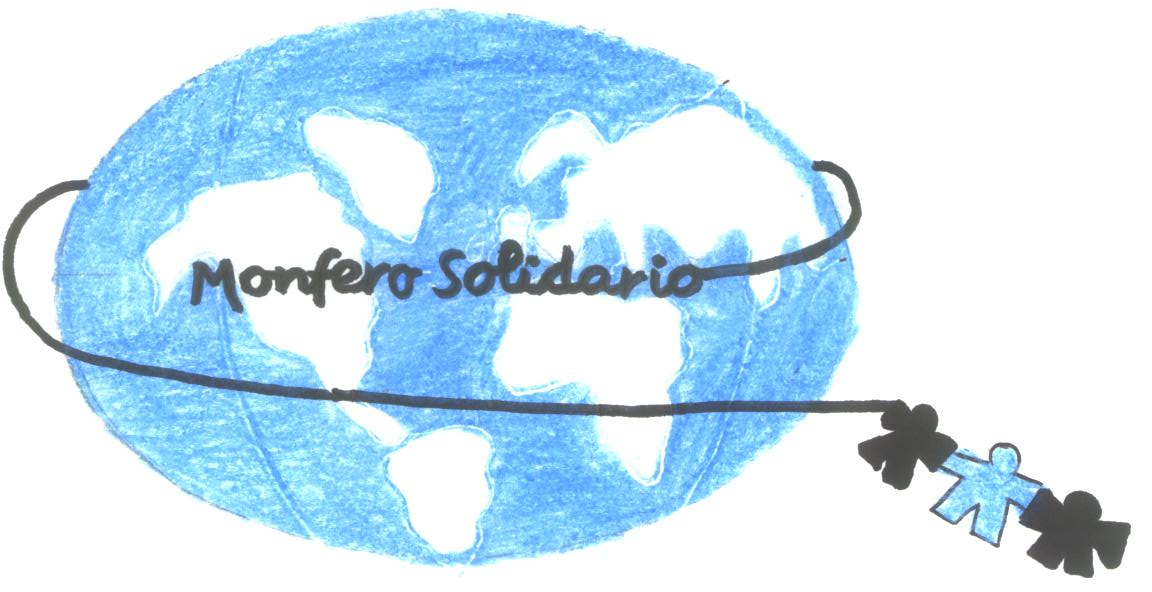 Monfero Solidario